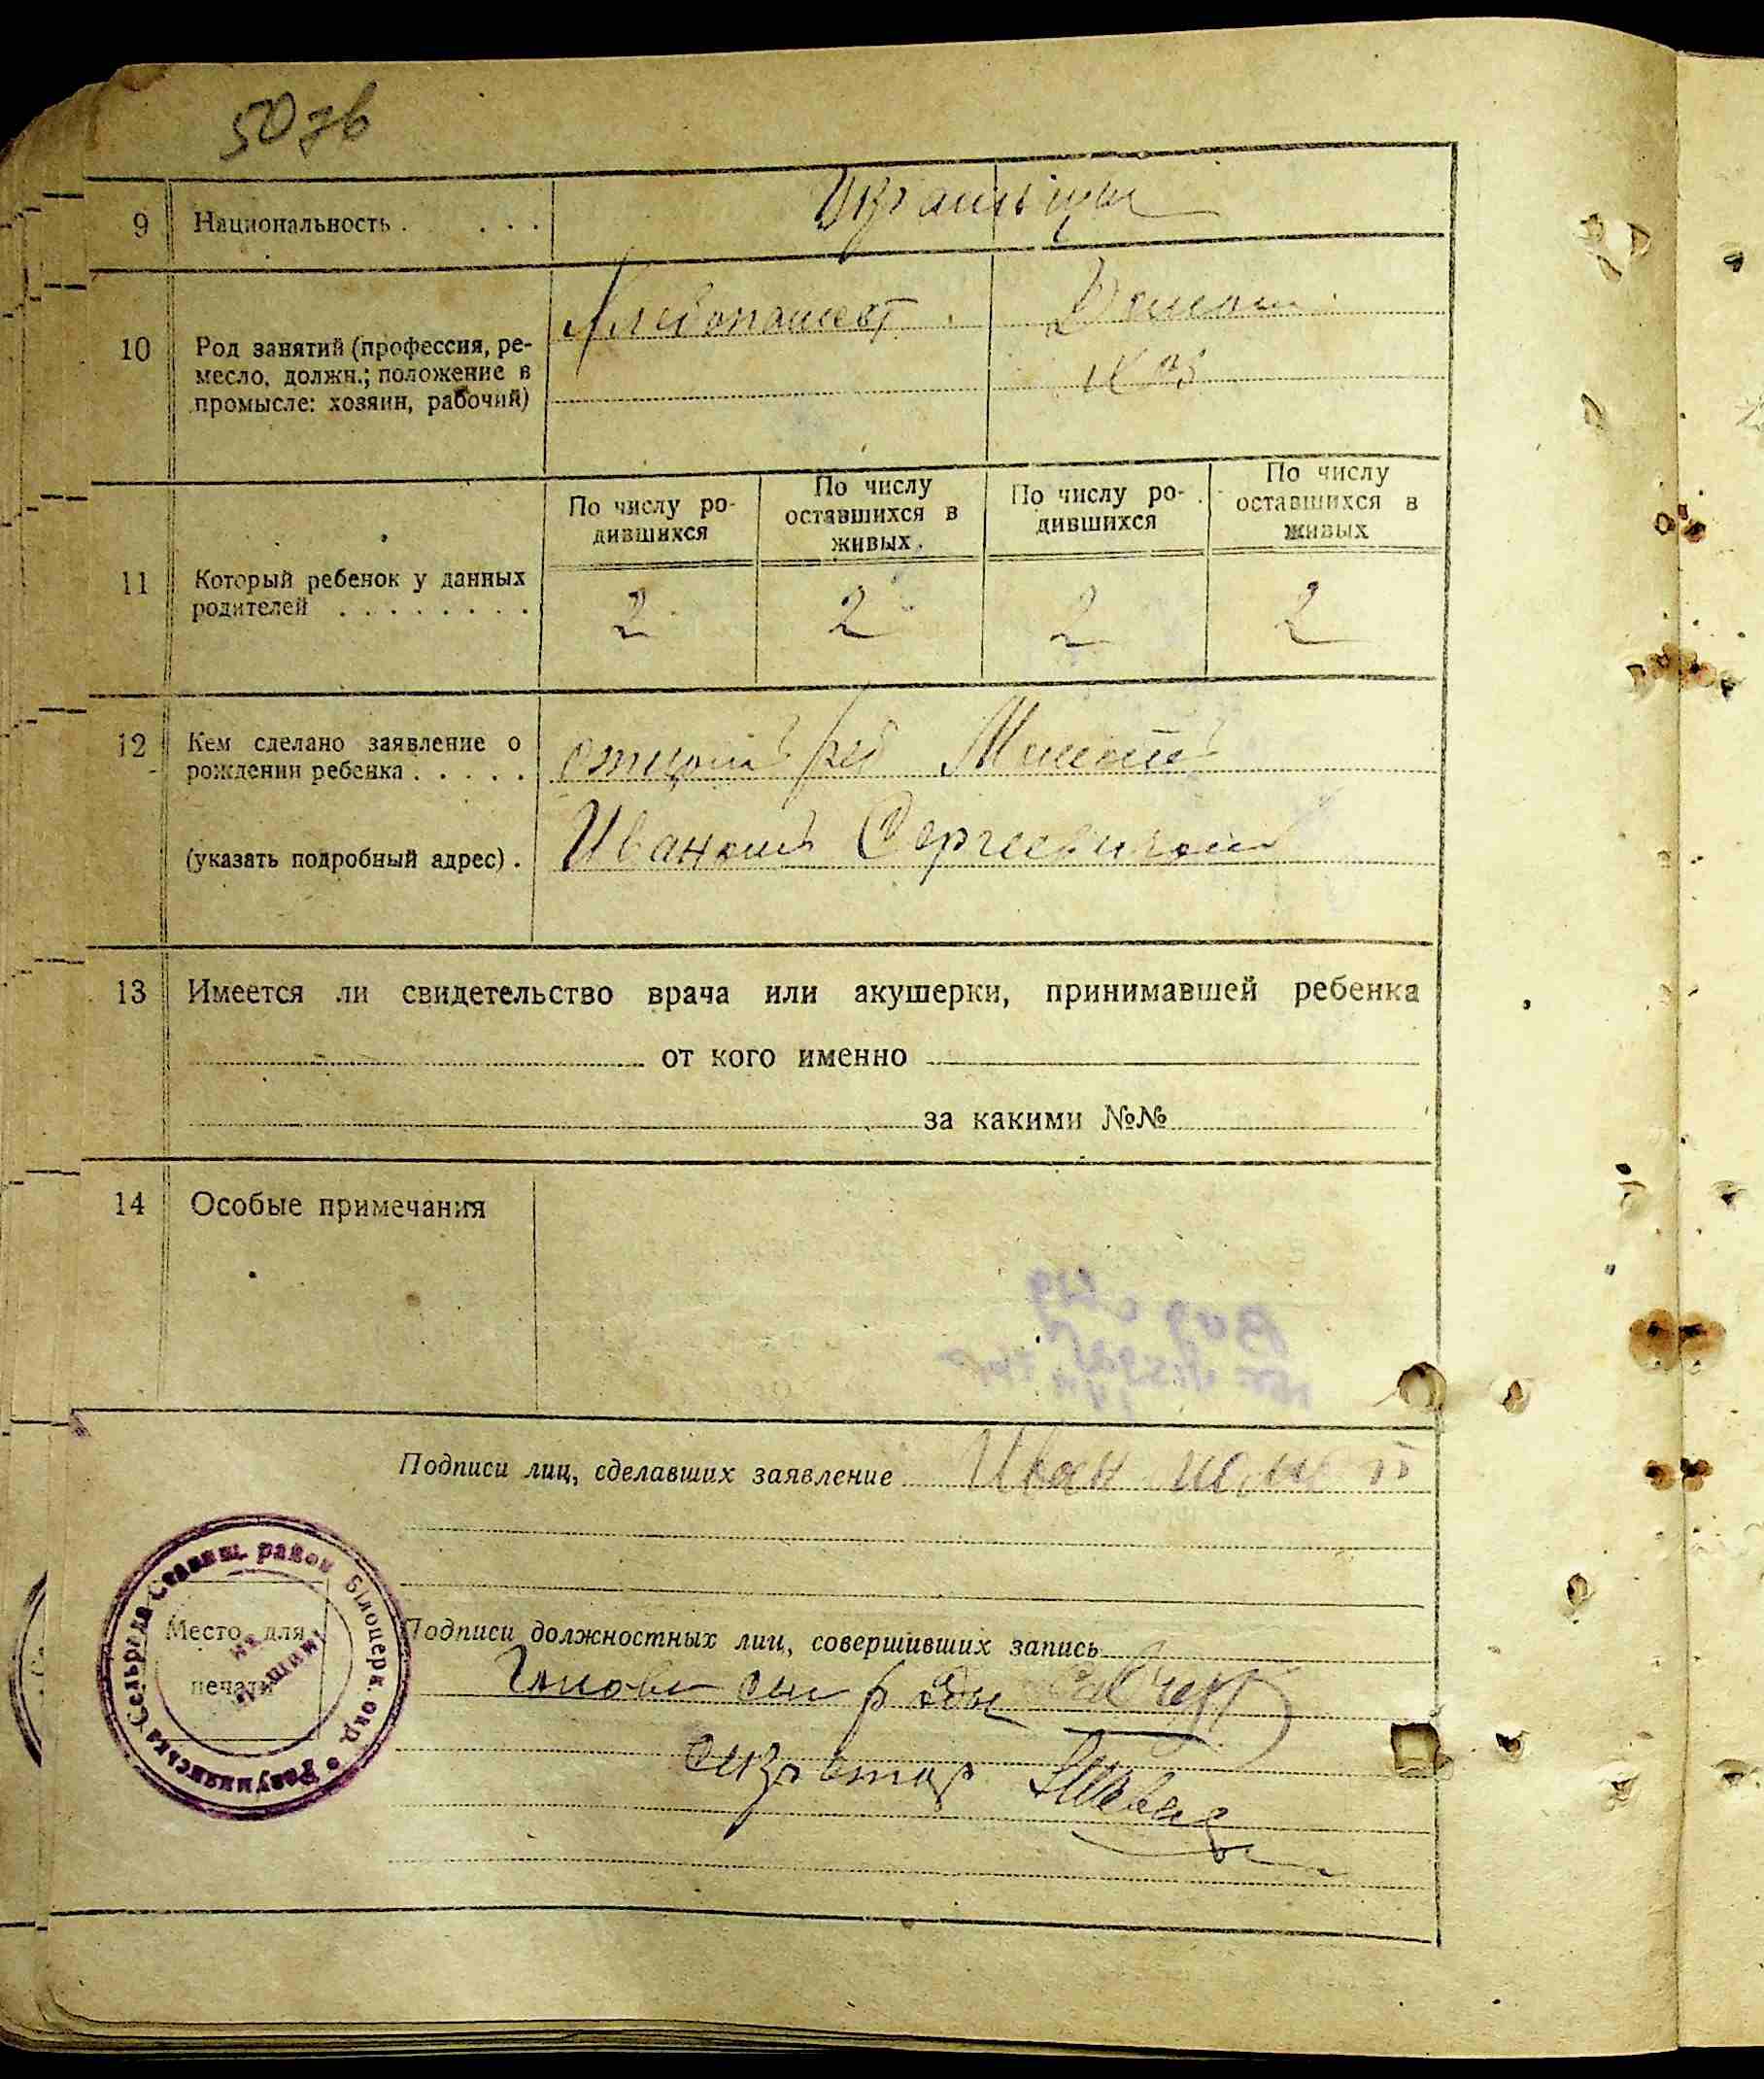 50 зв
9 Национальность . . . . Украинцы
10 Род занятий (профессия, ре-
месло, должн.; положение в
промысле: хозяин, рабочий)
Хлебопашест. Домаш.
хоз
По числу ро-
дившихся
По числу
оставшихся в
живых.
По числу ро-
дившихся
По числу
оставшихся в
живых
11 Который ребенок у данных
родителей . . . . . . . .
2 2 2 2
12 Кем сделано заявление о
рождении ребенка . . . . .
отцом реб
(указать подробный адрес) . Иваномъ Сергеевичом
13 Имеется ли свидетельство врача или акушерки, принимавшей ребенка
от кого именно
за какими №№
14 Особые примечания
Подписи лиц, сделавших заявление Иван
Место для
печати
Подписи должностных лиц, совершивших запись
Голова сил ради
секретар Швец
Сельрада Ставищ. район Білоцерк. окр.